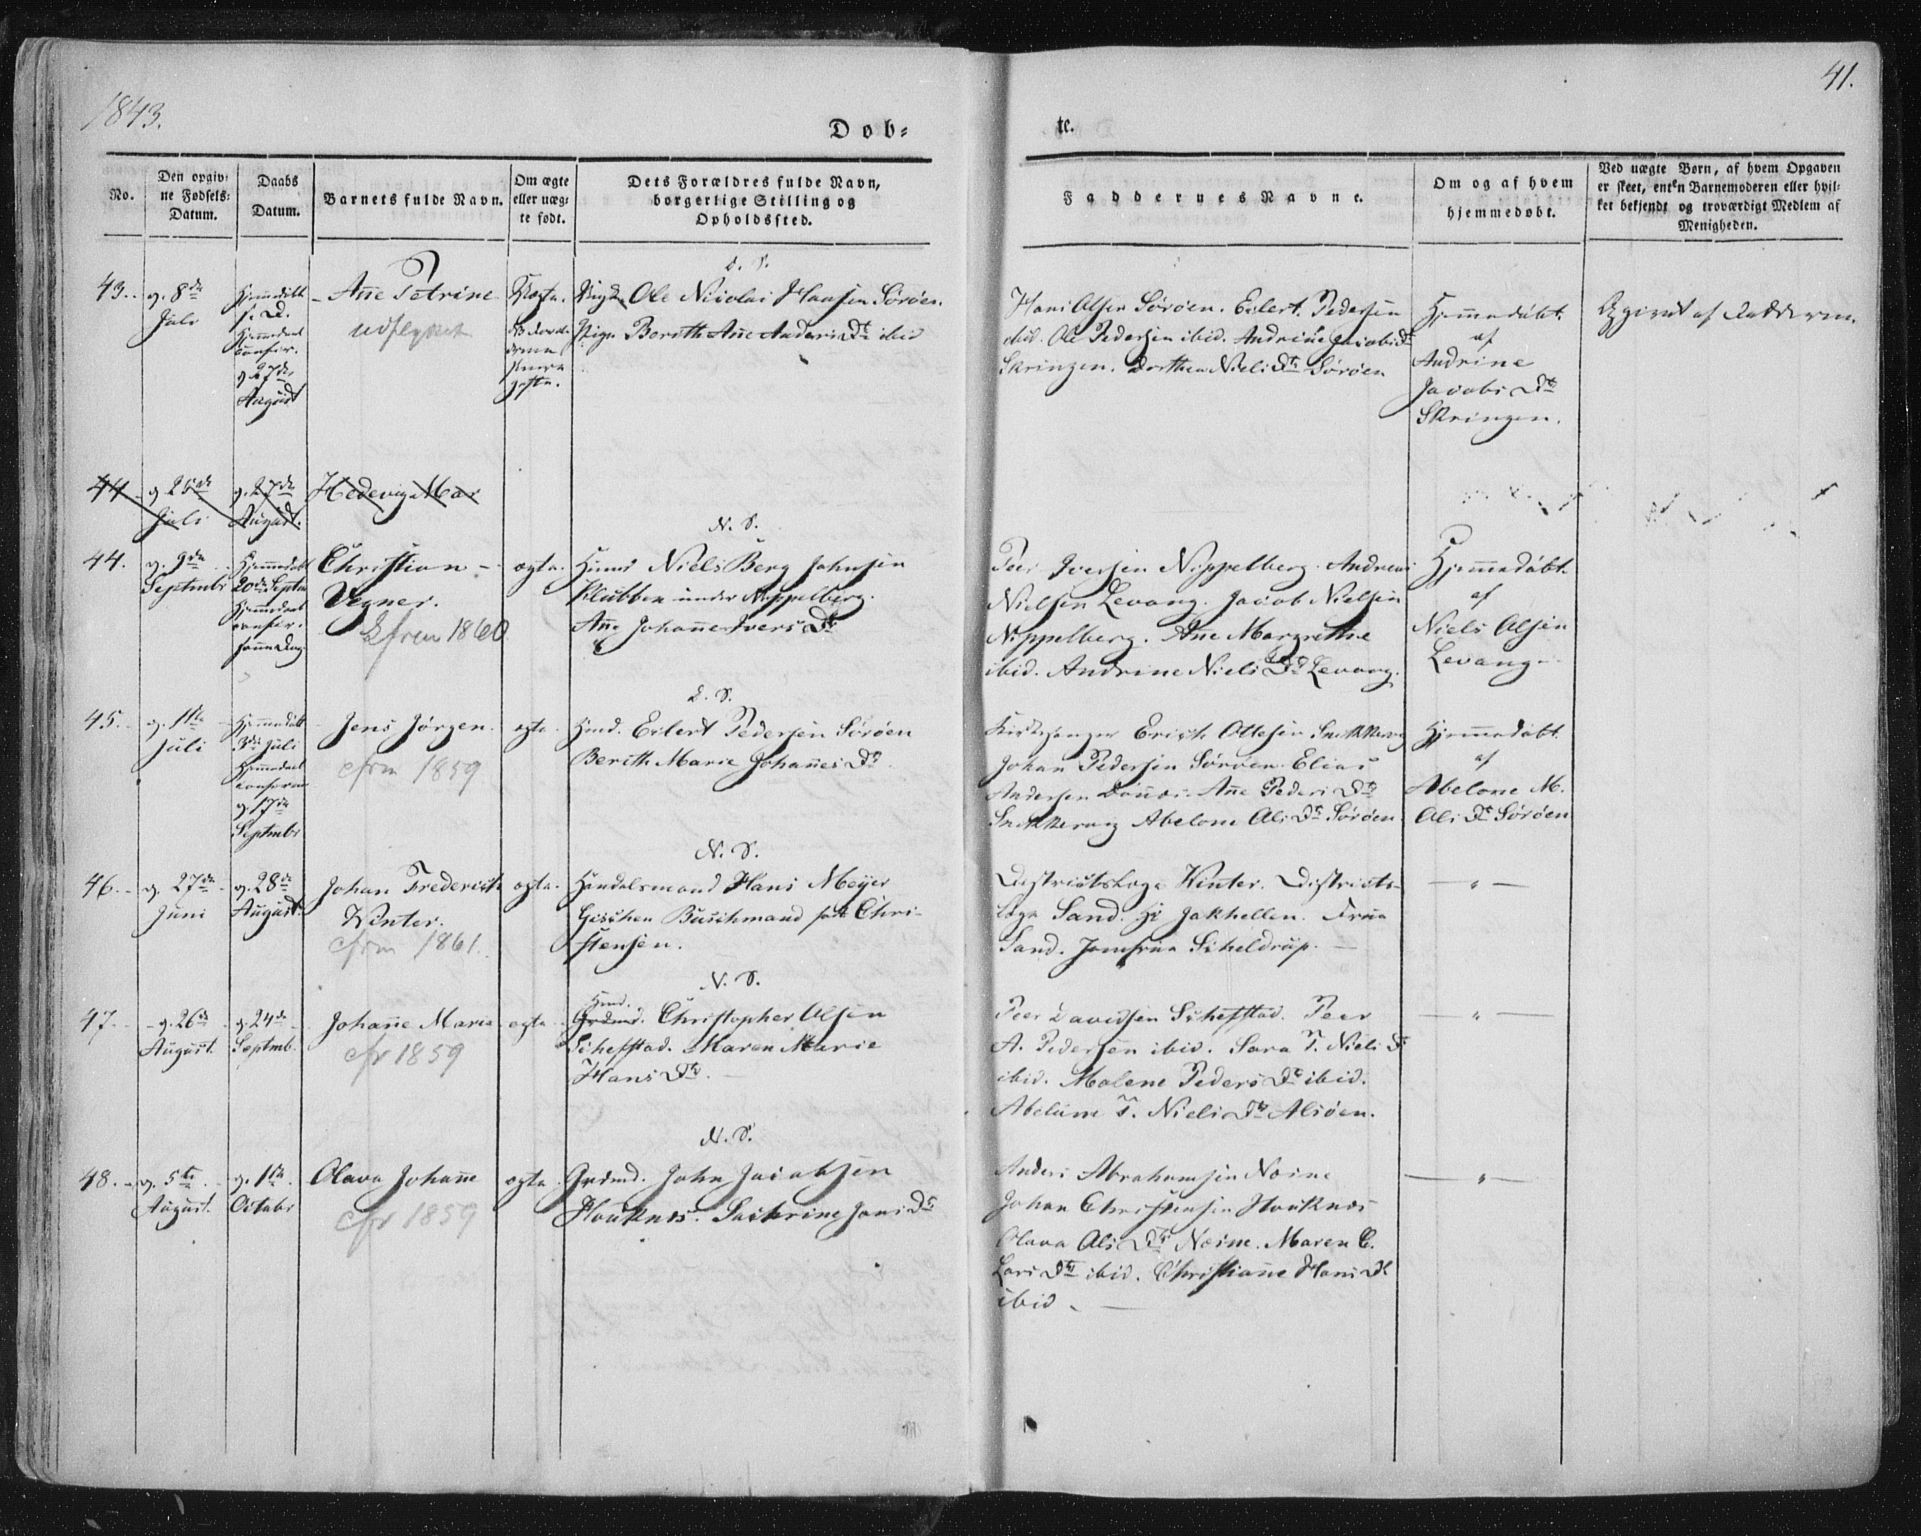 1843.
41.
Døb-
te.
No.
Den opgiv-
ne Fødsels-
Datum.
Daabs
Datum.
Barnets fulde Navn.
Om ægte
eller uæg-
te født.
Dets Forældres fulde Navn,
borgerlige Stilling og
Opholdssted.
Faddernes Navne.
Om og af hvem
hjemmedøbt.
Ved uægte Børn, af hvem Opgaven
er skeet, enten Barnemoderen eller hvil-
ket bekjendt og troværdigt Medlem af
Menigheden.
43.
g. 8de
Juli
Hjemmedøbt
s. D.
Hjemmedaab
confir.
g. 27de
August
Ane Petrine
udflyttet
Uægte.
D. S.
Ungk. Ole Nicolai Hansen Sørøen.
Pige Berith Ane Anders Dtr ibid
Hans Olsen Sørøen. Eilert Pedersen
ibid. Ole Pedersen ibid. Andrine Jacobs Dtr
Skringen. Dorthea Niels Dtr Sørøen
Hjemmedøbt
af
Andrine
Jacobs Dtr
Skringen.
Opgivet af Fadderne.
44
g. 25de
Juli
g. 27de
August.
Hedevig Mar
44.
g. 9de
Septmbr
Hjemmedøbt
20de Septm
Hjemmedaab
confir.
samme Dag
Christian
Vegner.
Cfrm 1860
ægte.
N. S.
Huusm Niels Berg Johnsen
Klubben under Nippelberg.
Ane Johanne Ivers Dtr
Peer Iversen Nippelberg. Andreas
Nielsen Levang. Jacob Nielsen
Nippelberg. Ane Margrethe
ibid. Andrine Niels Dtr Levang.
Hjemmedøbt
af
Niels Olsen
Levang.
45.
g. 11te
Juli
Hjemmedøbt
Juli
Hjemmedaab
confirm
g. 17de
Septmbr
Jens Jørgen.
cfrm 1859
ægte.
D. S.
Hmd. Eilert Pedersen Sørøen
Berith Marie Johanes Dtr.
Kirkesanger Erich Ottesen Snekkevig
Johan Pedersen Sørøen. Elias
Andersen Dønæs. Ane Peders Dtr
Snekkevig Abelone Ols Dtr Sørøen
Hjemmedøbt
af
Abelone M.
Ols Dtr Sørøen
46.
g. 27de
Juni
g. 28de
August.
Johan Frederich
Winter.
cfrm 1861.
ægte.
N. S.
Handelsmand Hans Meyer
Gischen Buschmand født Chri-
stensen.
Districtslæge Winter. Districts-
læge Sand. Hr Jakhellen. Frue
Sand. Jomfrue Scheldrup.
47.
g. 26de
August.
g. 24de
Septmb.
Johane Marie
cfr 1859
ægte
N. S.
Hmd.
Grdmd. Christopher Olsen
Schefstad. Maren Marie
Hans Dtr.
Peer Davidsen Schefstad. Peer
A. Pedersen ibid. Sara T. Niels D.
ibid. Malene Peders Dtr ibid.
Abelune T. Niels Dtr Alsøen.
48.
g. 5te
August.
g. 1ste
Octobr
Olava Johane
cfr 1859
ægte.
N. S.
Grdmd. John Jacobsen
Houknes. Cathrine Jens Dtr
Anders Abrahamsen Næsne
Johan Christensen Houknes
Olava Ols Dtr Næsne. Maren C.
Lars Dtr ibid. Christiane Hans Dtr
ibid.